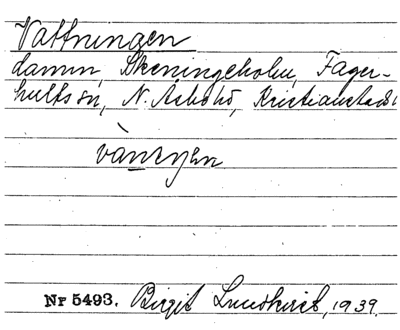 Vattningen
damm, Skeningeholm, Fager-
hults sn, N. Åsbo hd, Kristianstads
Nr 5493. Birgit Lundkvist, 1939.